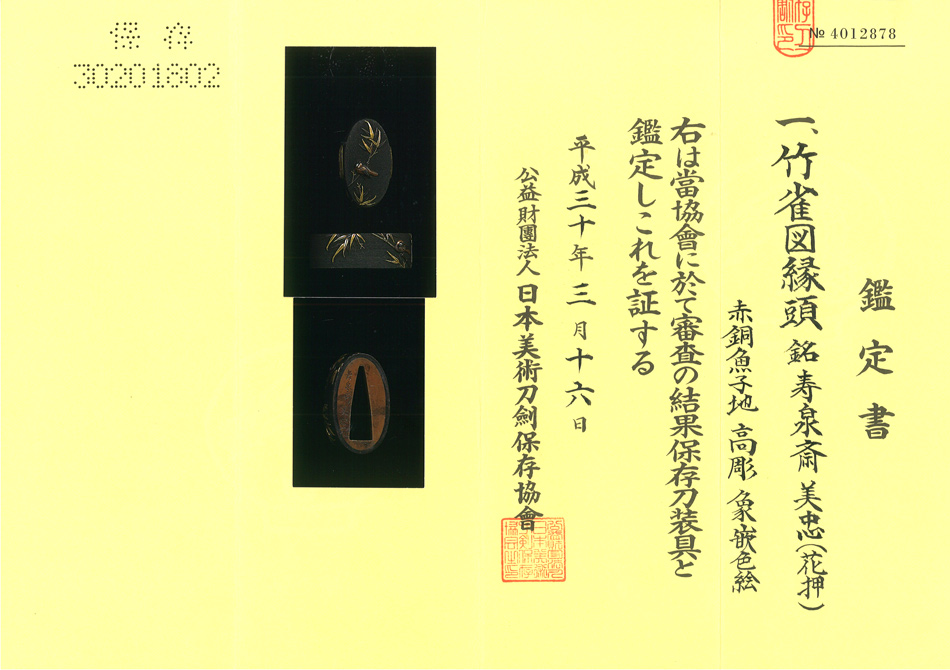 鑑定書
№ 4012878
一、竹雀図縁頭 銘 寿泉斎 美忠(花押)
赤銅魚子地 高彫 象嵌色絵
右は當協會に於て審査の結果保存刀装具と
鑑定しこれを証する
平成三十年三月十六日
公益財團法人 日本美術刀劍保存協會
保存
30201802